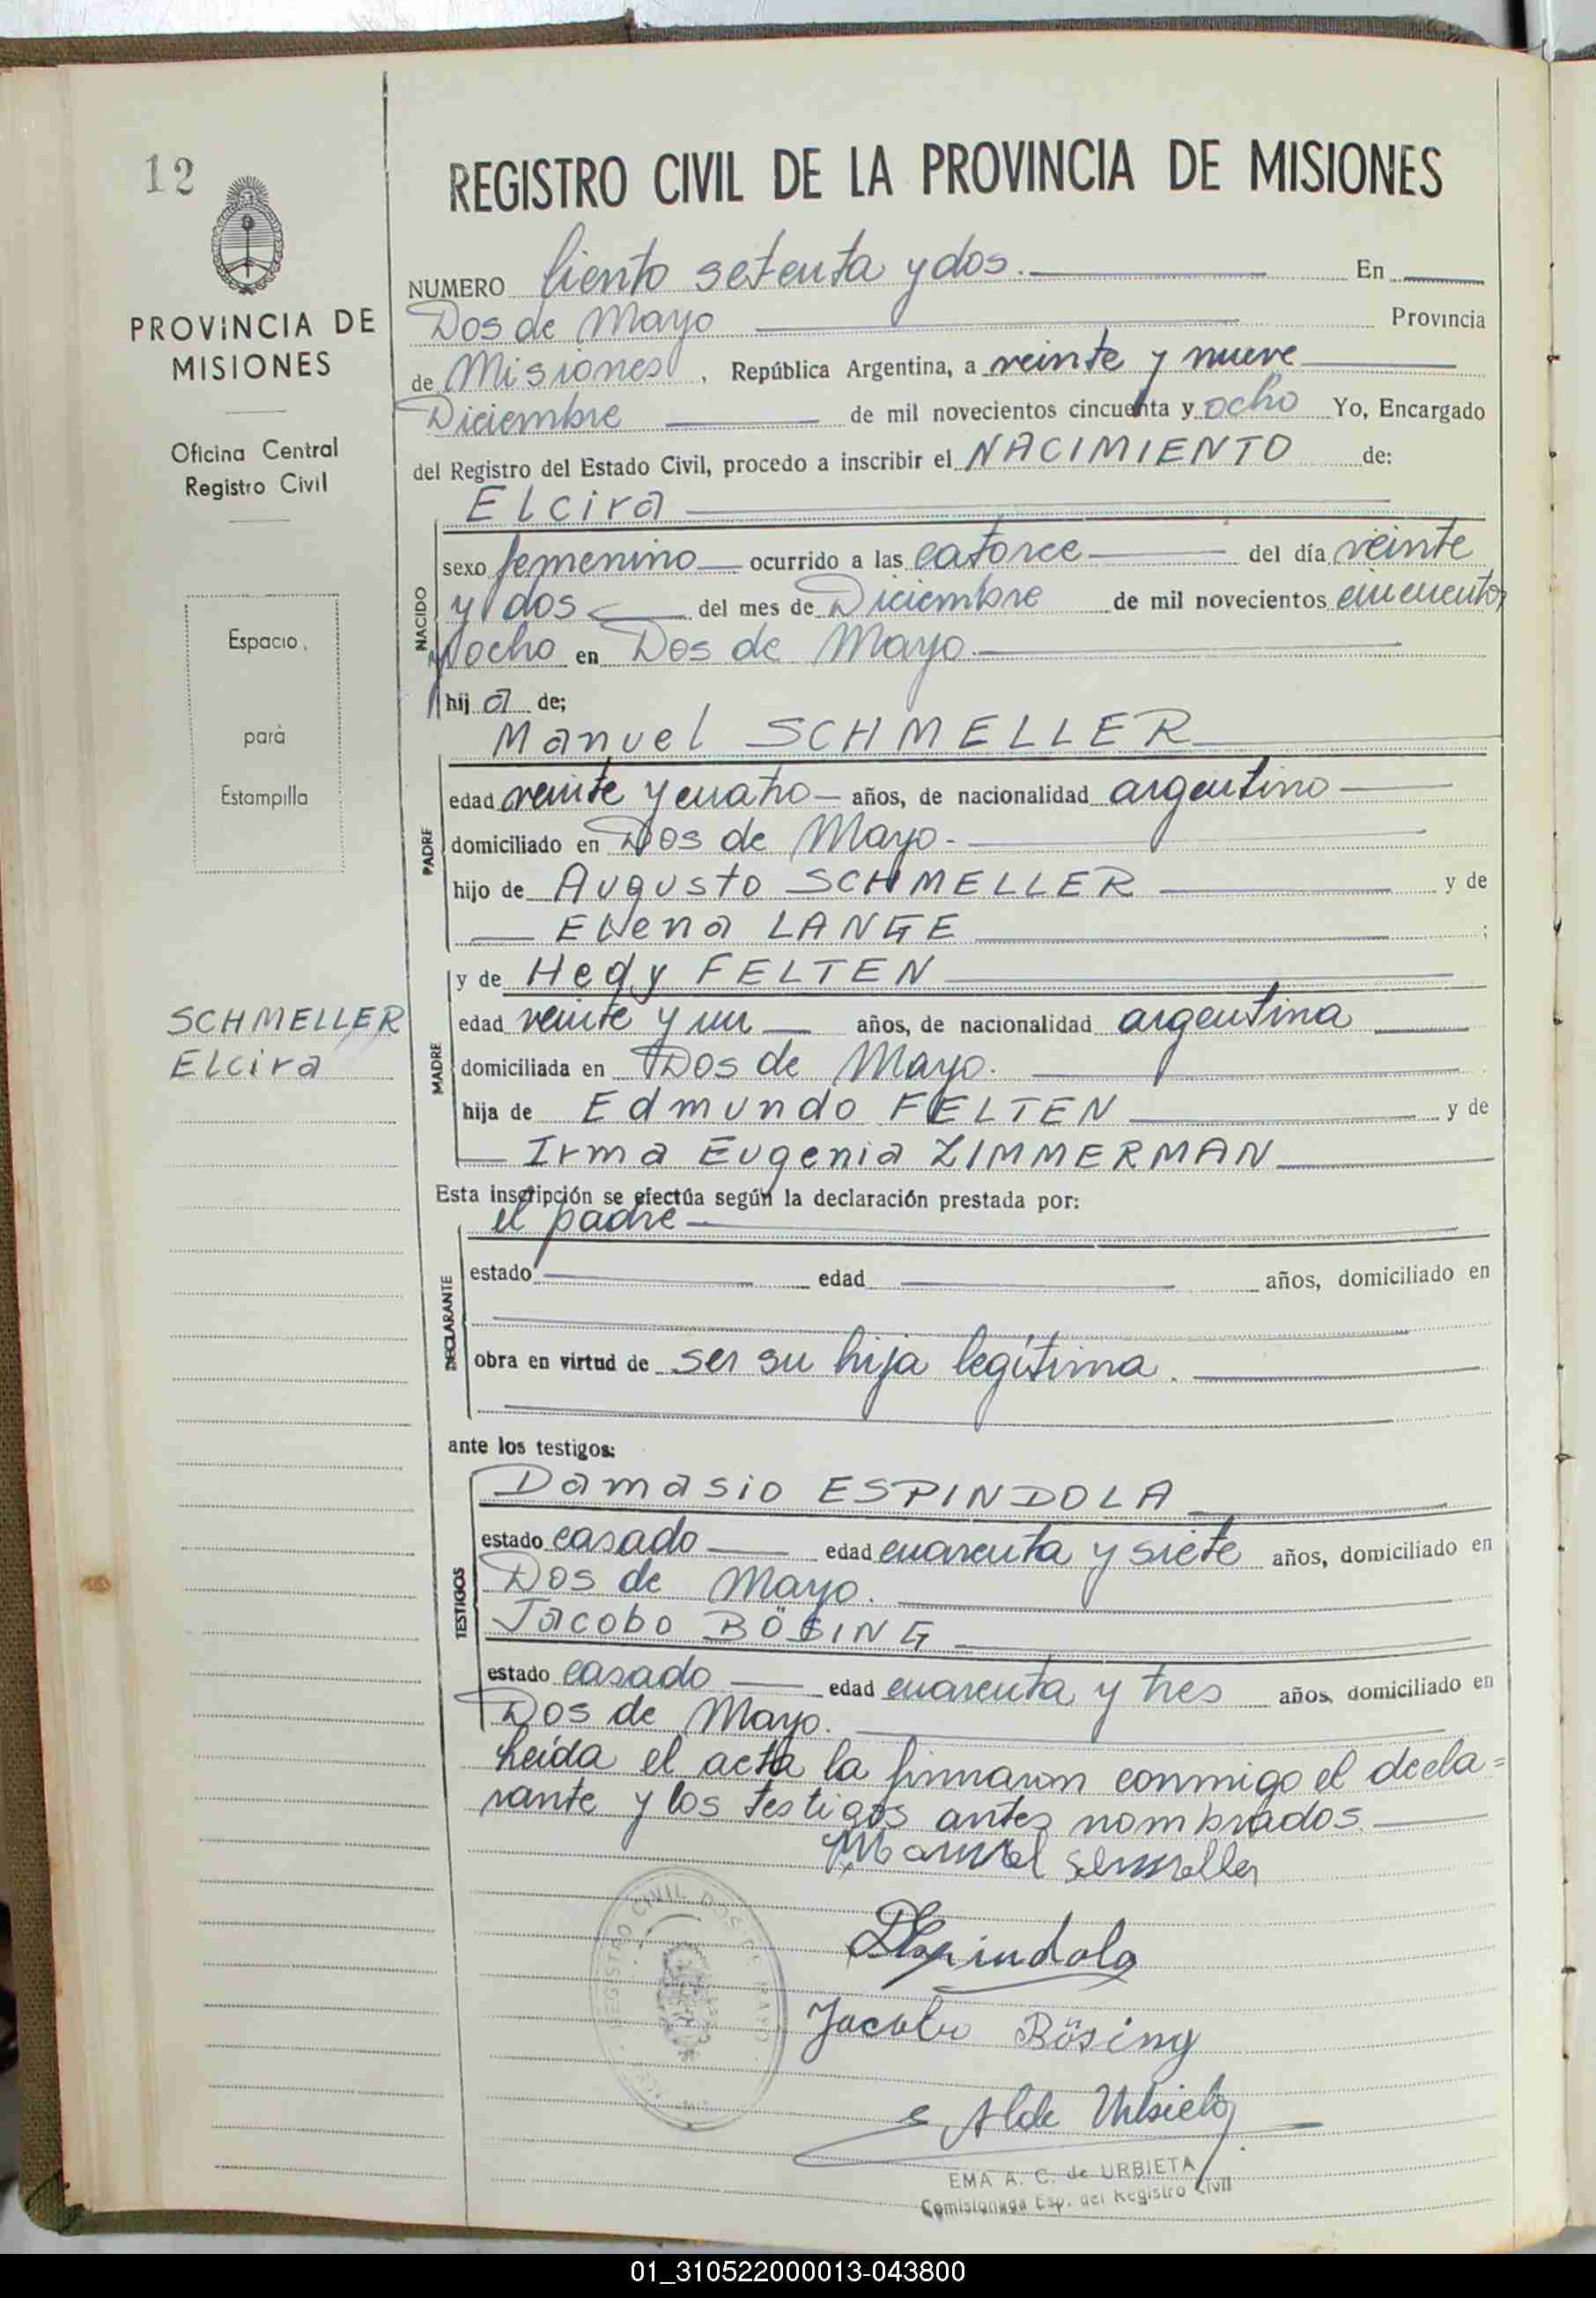 12
PROVINCIA DE
MISIONES
Oficina Central
Registro Civil
Espacio
para
Estampilla
SCHMELLER
Elcira
REGISTRO CIVIL DE LA PROVINCIA DE MISIONES
NUMERO Ciento setenta y dos. En
Dos de Mayo Provincia
de Misiones, República Argentina, a veinte y nueve
Diciembre de mil novecientos cincuenta y ocho Yo, Encargado
del Registro del Estado Civil, procedo a inscribir el NACIMIENTO de:
Elcira
NACIDO
sexo femenino ocurrido a las catorce del día veinte
y dos del mes de Diciembre de mil novecientos cincuenta
y ocho en Dos de Mayo
hija de;
Manuel SCHMELLER
PADRE
edad veinte y cuatro años, de nacionalidad argentino
domiciliado en Dos de Mayo.
hijo de Augusto SCHMELLER y de
Elena LANGE ;
y de Hedy FELTEN
MADRE
edad veinte y un años, de nacionalidad argentina
domiciliada en Dos de Mayo.
hija de Edmundo FELTEN y de
Irma Eugenia ZIMMERMAN
Esta inscripción se efectúa según la declaración prestada por:
el padre
DECLARANTE
estado edad años, domiciliado en
obra en virtud de ser su hija legítima.
ante los testigos:
TESTIGOS
Damasio ESPINDOLA
estado casado edad cuarenta y siete años, domiciliado en
Dos de Mayo.
Jacobo BÖSING
estado casado edad cuarenta y tres años, domiciliado en
Dos de Mayo.
Leída el acta la firmaron conmigo el decla=
rante y los testigos antes nombrados.
Manuel Schmeller
DEspindola
Jacobo Bösing
REGISTRO CIVIL DOS DE MAYO
EMA A. C. de URBIETA
Comisionada Esp. del Registro Civil
01_310522000013-043800